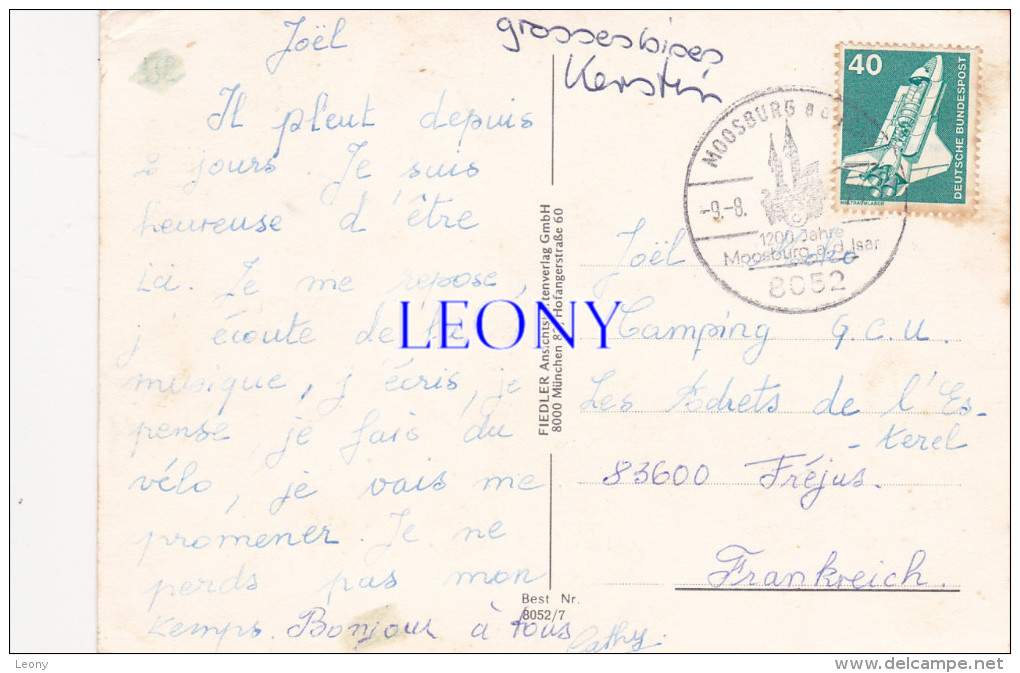 Joël
Il pleut depuis
2 jours. Je suis
heureuse d'être
ici. Je me repose,
j'écoute de la
musique, j'écris, je
pense, je fais du
vélo, je vais me
promener. Je ne
perds pas mon
temps. Bonjour à tous
Cathy.
grosses bises
Kerstin
FIEDLER Ansichtskartenverlag GmbH
8000 München 82, Hofangerstraße 60
Best Nr.
8052/7
40
DEUTSCHE BUNDESPOST
MOOSBURG a d
-9.-8.
1200 Jahre
Moosburg a.d. Isar
8052
Joël
Camping G.C.U.
Les Adrets de l'Es-
-terel
83600 Fréjus.
Frankreich.
LEONY
Leony
www.delcampe.net